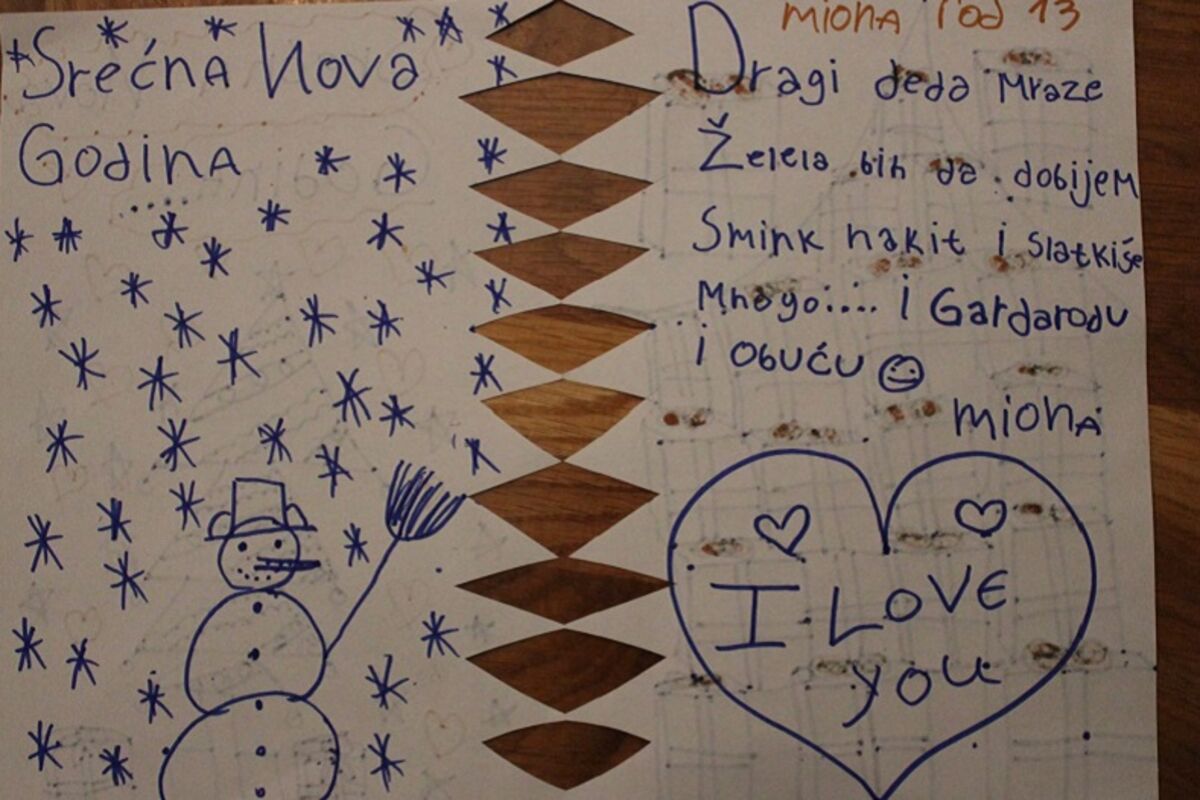 Srećna Nova
Godina
miona rođ 13
Dragi deda Mraze
Želela bih da dobijem
Smink nakit i slatkiše
Mnogo:... i Gardarodu
i obuću
miona
I LOVE
you